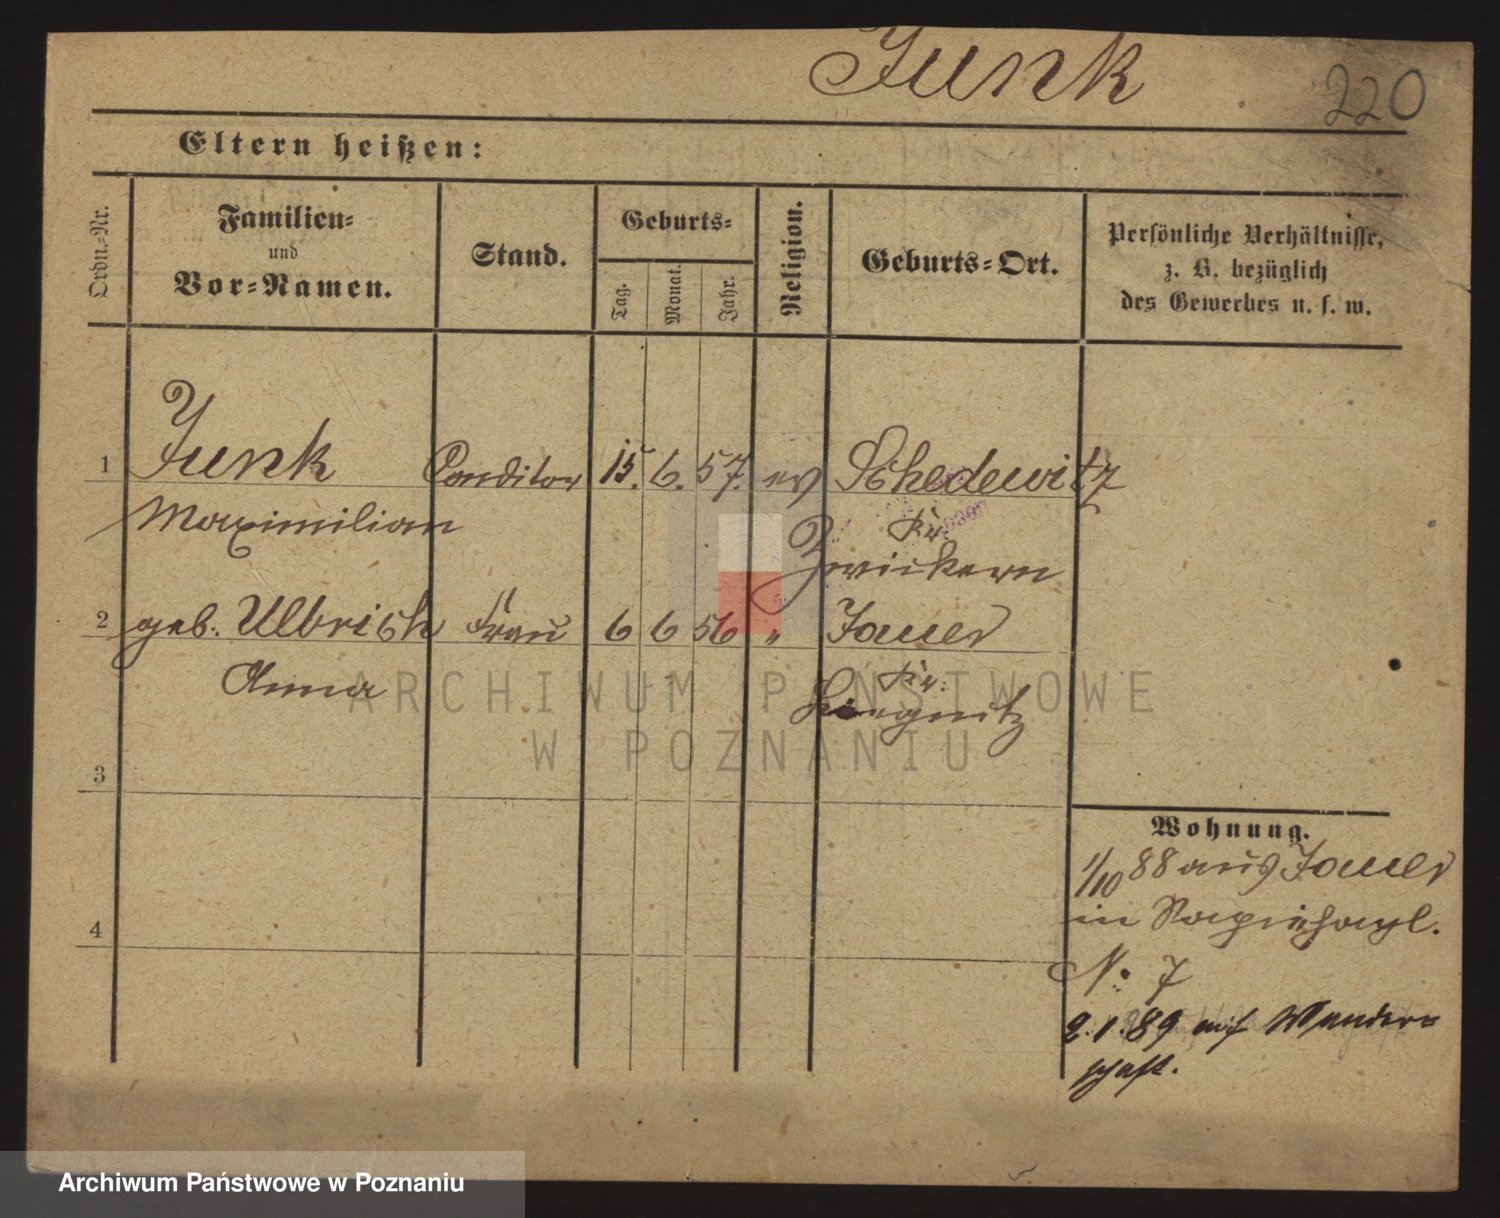 Junk
220
Eltern heißen:
Ordn.-Nr.
Familien-
und
Vor-Namen.
Stand.
Geburts-
Tag.
Monat.
Jahr.
Religion.
Geburts-Ort.
Persönliche Verhältnisse,
z. B. bezüglich
des Gewerbes u. s. w.
1 Junk Conditor 15. 6. 57. ev Schedewitz
Maximilian Kr.
Zwickern
2 geb. Ulbrich Frau 6 6 56 " Jauer
Anna Kr.
Liegnitz
ARCHIWUM PAŃSTWOWE
W POZNANIU
3
4
Wohnung.
1/10 88 aus Jauer
in Sapiehapl.
N: 7
2.1.89 auf Wander-
schaft.
Archiwum Państwowe w Poznaniu